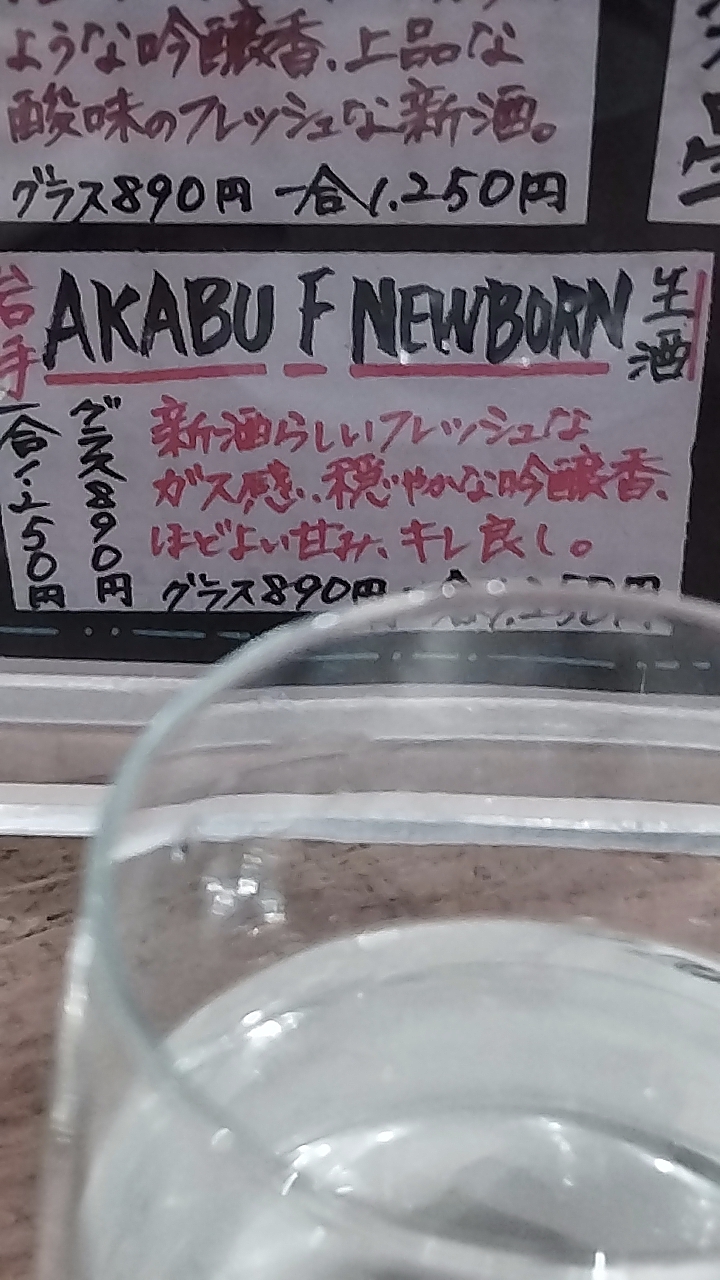 ような吟醸香、上品な
酸味のフレッシュな新酒。
グラス890円 一合1.250円
岩手 AKABU F NEWBORN 生酒
新酒らしいフレッシュな
ガス感、穏やかな吟醸香、
ほどよい甘み、キレ良し。
グラス890円 一合1.250円
グラス890円
一合1.250円